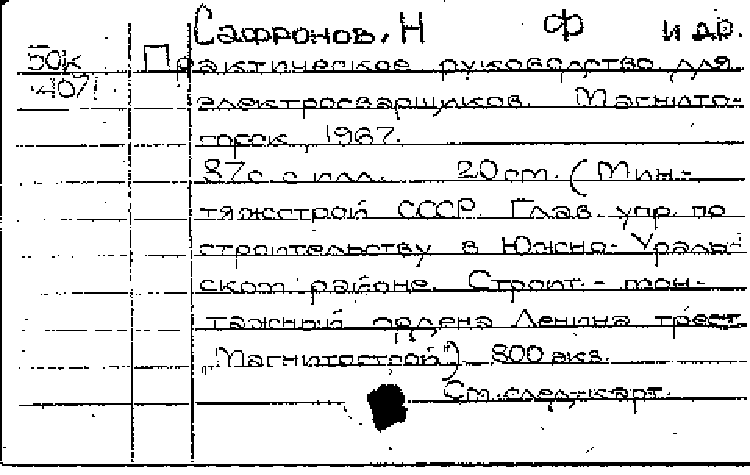 Сафронов, Н Ф и др.
50к Практическое руководство для
электросварщиков. Магнито-
горск, 1967.
87с. с илл. 20 см. (Мин-
тяжстрой СССР. Глав. упр. по
строительству в Южно-Ураль-
ском районе. Строит.-мон-
тажный ордена Ленина трест
"Магнитострой") 800 экз.
См. след. карт.